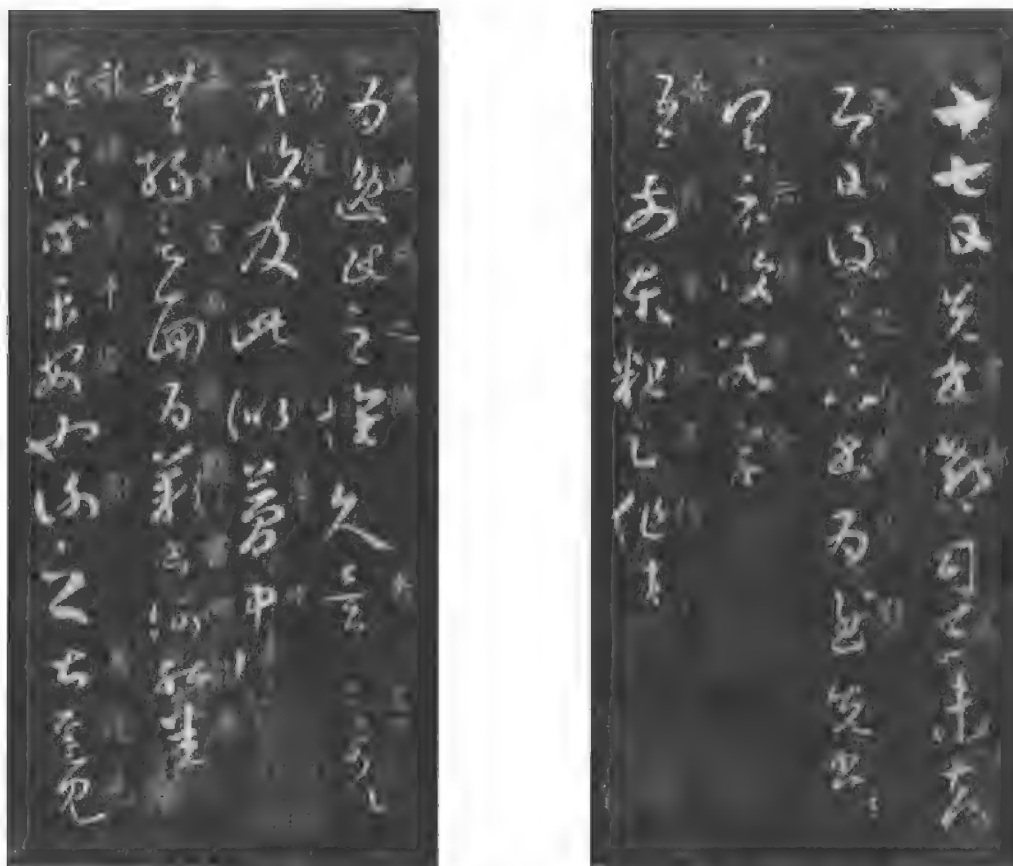 十七日先書郗司馬未去
即日得足下書為慰先書以
具示復數字
吾前東粗足作佳
為逸民之懷久矣足下何以
方復及此似夢中語
無緣言面為歎書何能悉
龍保等平安也謝之甚遲見